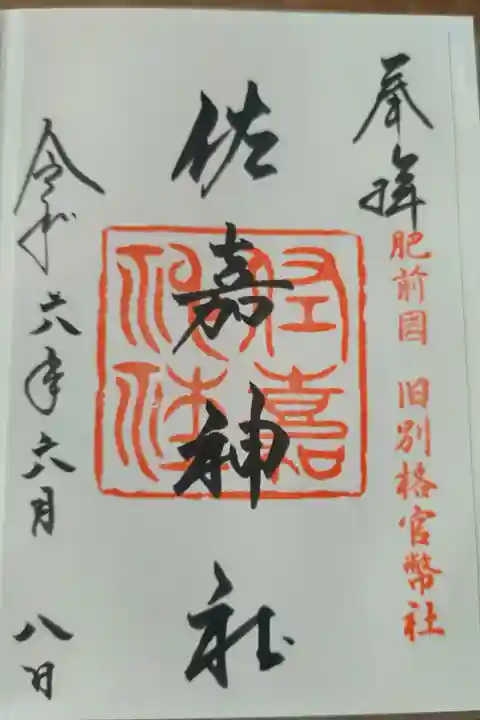 奉拝
肥前国 旧別格官幣社
佐嘉神社
佐嘉神社
令和六年六月 八日